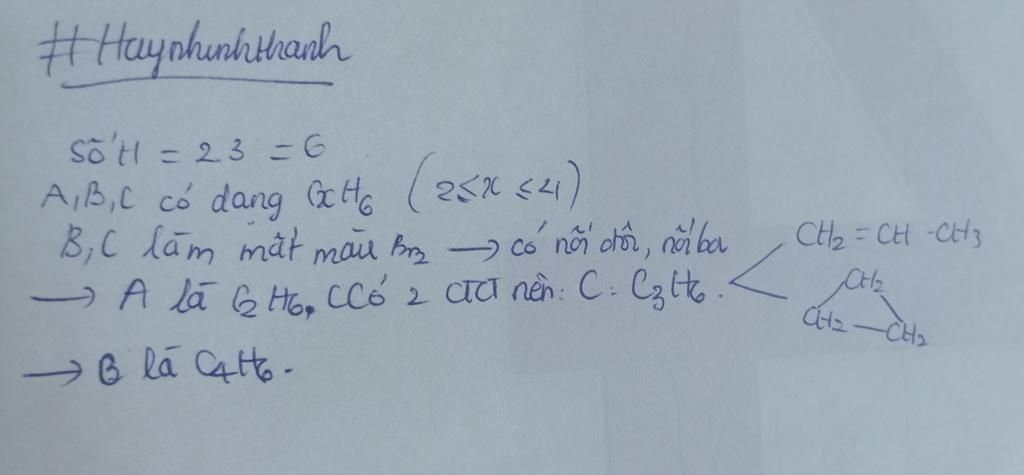 #Huynhunhthanh
Số H = 2.3 = 6
A,B,C có dạng CxH6 (2 ≤ x ≤ 4)
B,C làm mất màu Br2 → có nối đôi, nối ba
→ A là C2H6, C Có 2 CTCT nên: C: C3H6.
CH2 = CH - CH3
CH2
CH2 — CH2
→ B là C4H6.